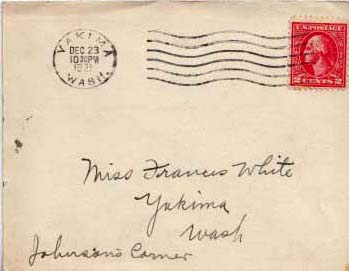 YAKIMA
DEC 23
10 30 PM
1931
WASH.
U.S. POSTAGE
2 CENTS 2
Miss Frances White
Yakima
Wash
Johnson's Corner